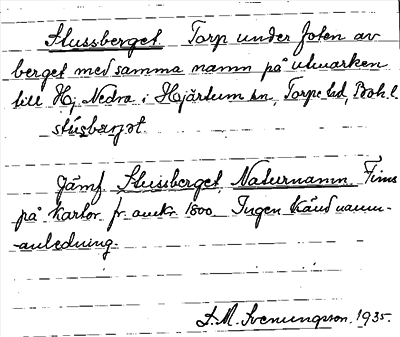 Slussberget Torp under foten av
berget med samma namn på utmarken
till Hj. Nedra i Hjärtum sn, Torpe hd, Boh. l.
Jämf. Slussberget, Naturnamn. Finns
på kartor fr. omkr. 1800. Ingen känd namn-
anledning.
S. M. Svenungsson. 1935.